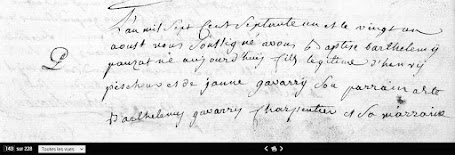 L'an mil sept Cent septante un et le vingt un
aoust nous soussigné avons Baptisé barthelemy
né aujourd'huy fils legitime d'henry
et de jeanne gavarry son parrain a eté
Barthelemy gavarry charpentier et sa marraine
143 sur 228 Toutes les vues